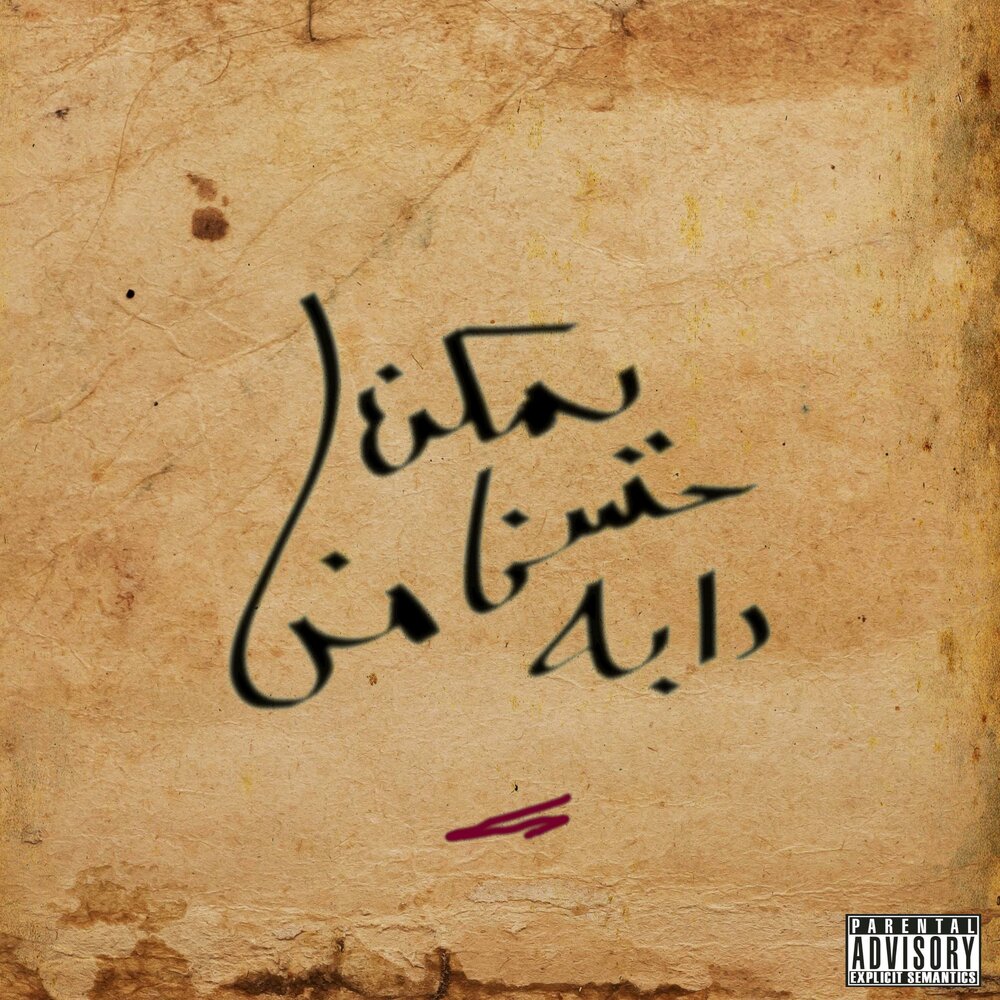 يمكن
حتسنا من
دابه
PARENTAL
ADVISORY
EXPLICIT SEMANTICS